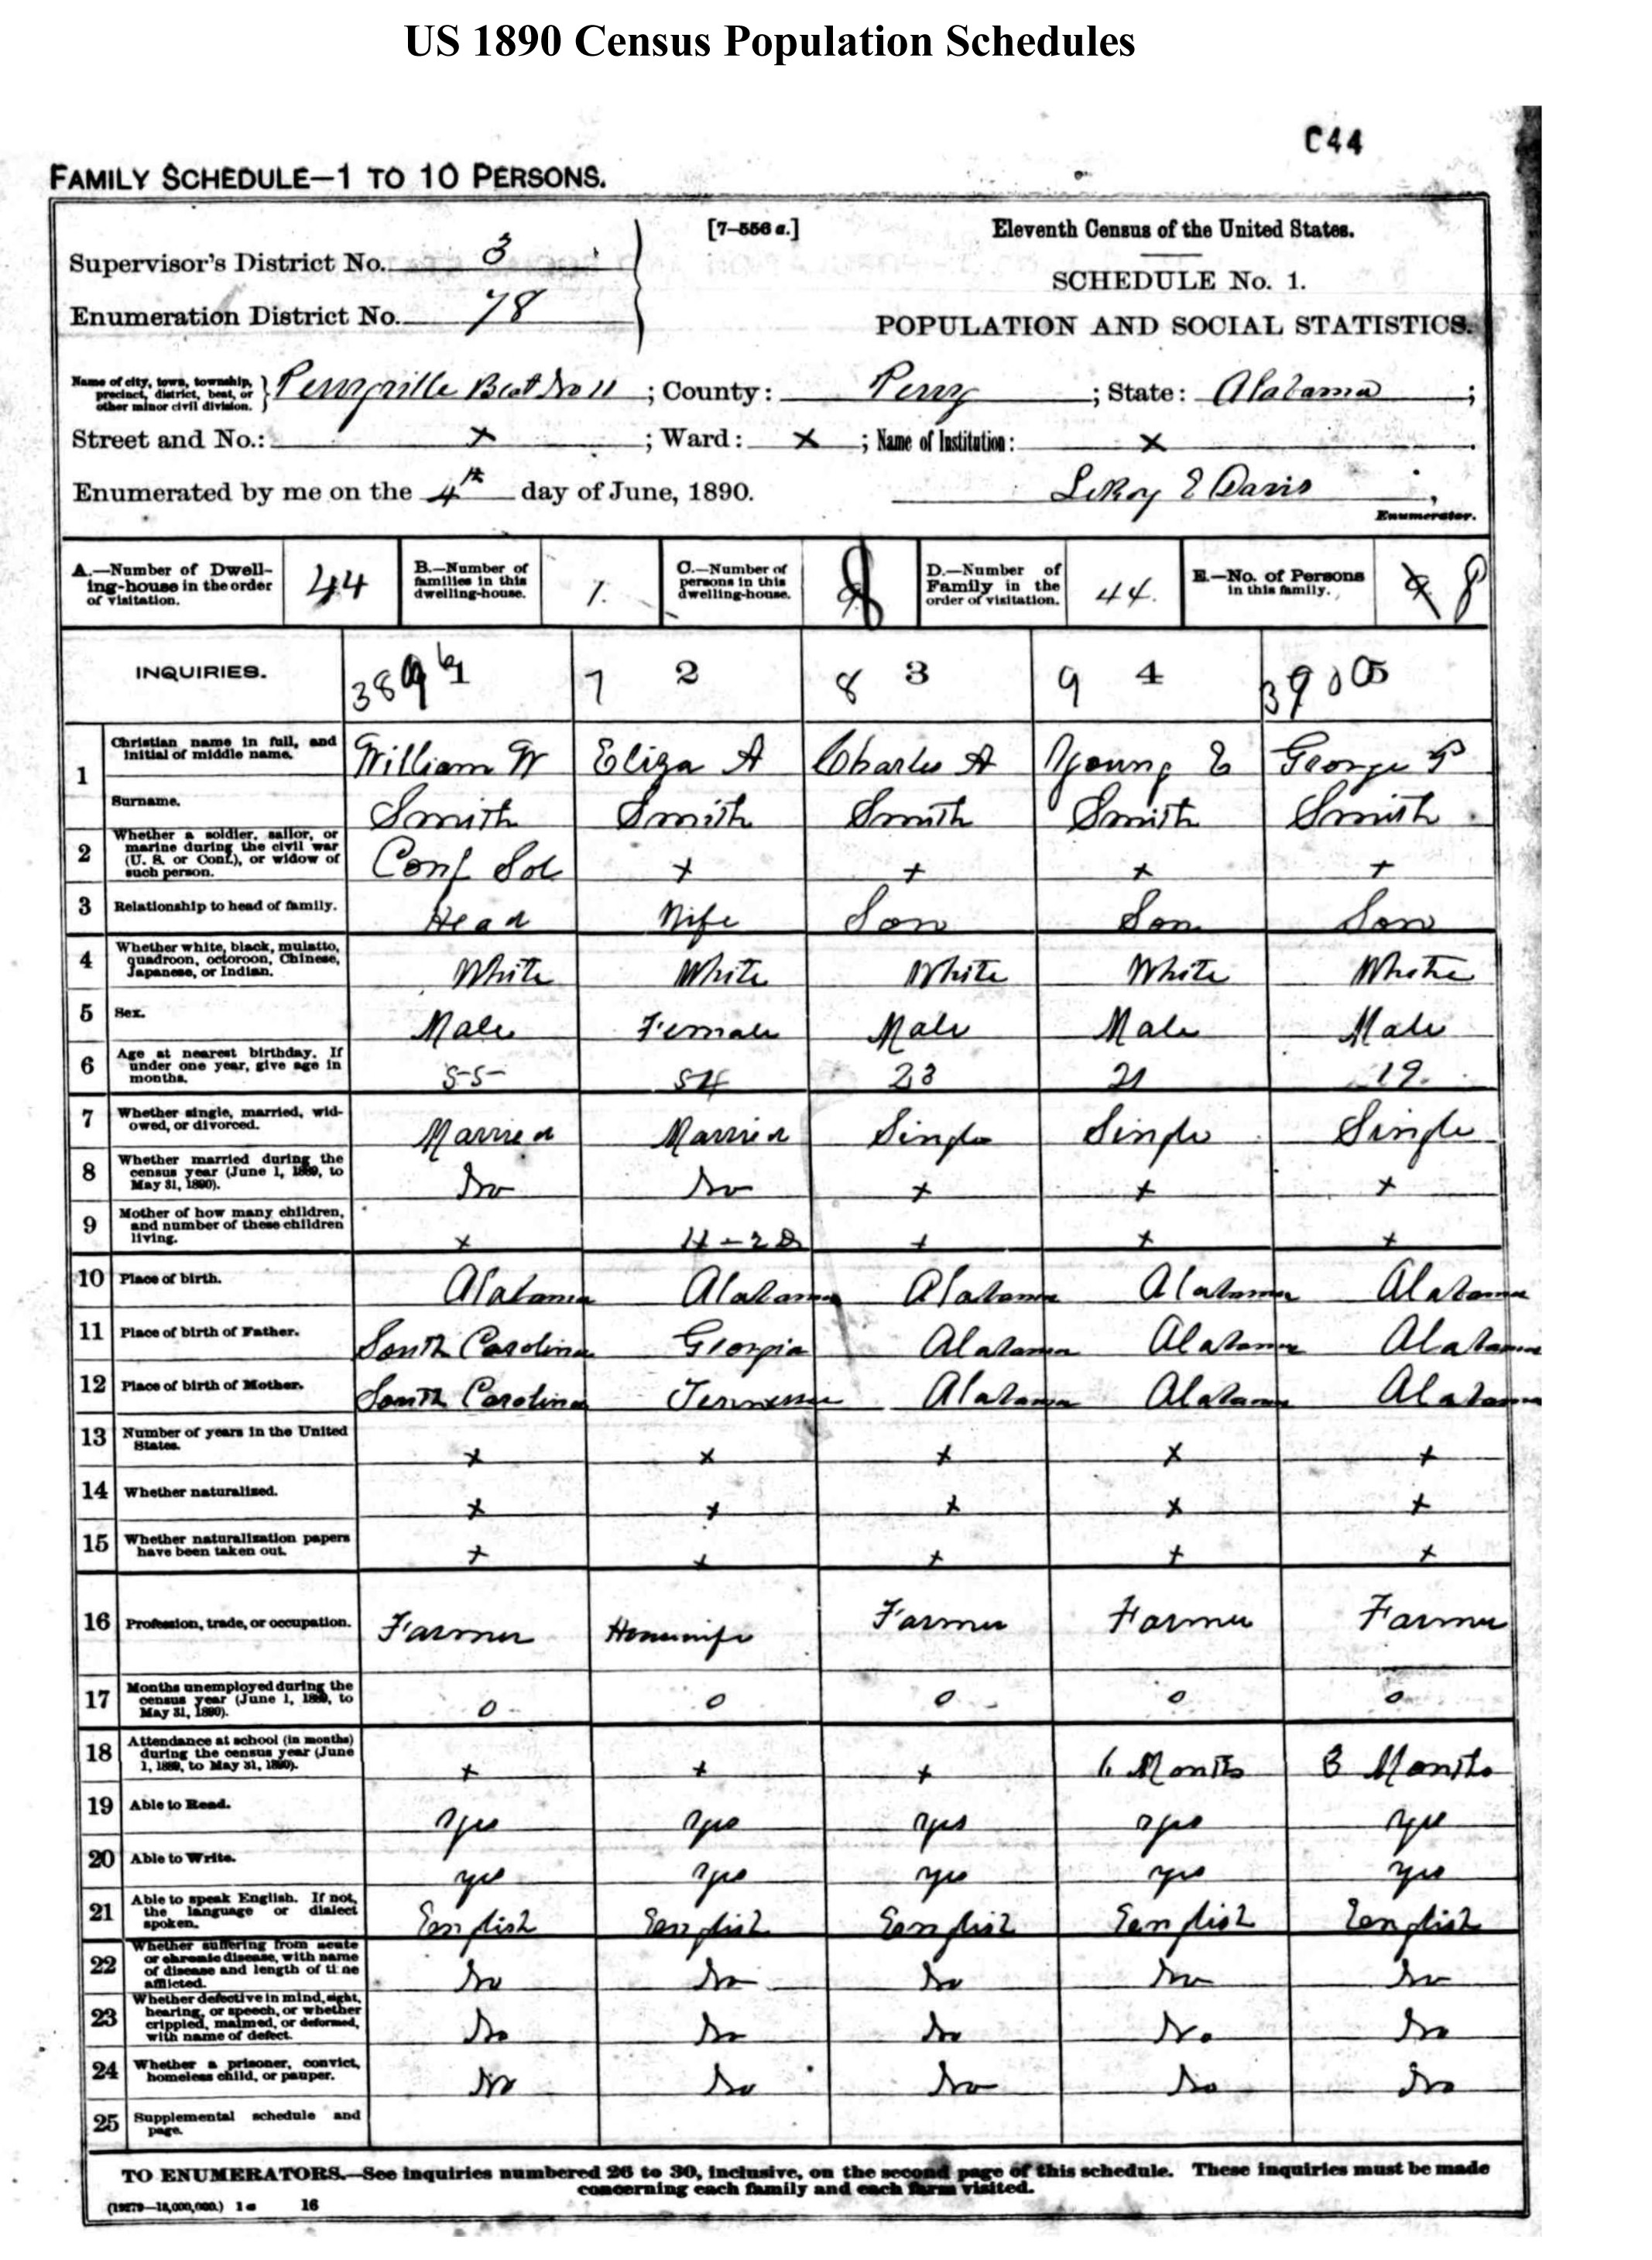 US 1890 Census Population Schedules
C44
FAMILY SCHEDULE—1 TO 10 PERSONS.
[7–556 a.]
Eleventh Census of the United States.
Supervisor's District No. 3
SCHEDULE No. 1.
Enumeration District No. 78
POPULATION AND SOCIAL STATISTICS.
Name of city, town, township, precinct, district, beat, or other minor civil division. } Perryville Beat No 11 ; County: Perry ; State: Alabama ;
Street and No.: x ; Ward: x ; Name of Institution: x
Enumerated by me on the 4th day of June, 1890. LeRoy E Davis,
Enumerator.
A.—Number of Dwelling-house in the order of visitation. 44 B.—Number of families in this dwelling-house. 1. C.—Number of persons in this dwelling-house. 8 D.—Number of Family in the order of visitation. 44. E.—No. of Persons in this family. 8
INQUIRIES. 1 7 2 8 3 9 4 3900 5
1 Christian name in full, and initial of middle name. William W Eliza A Charles A Young E George P
Surname. Smith Smith Smith Smith Smith
2 Whether a soldier, sailor, or marine during the civil war (U. S. or Conf.), or widow of such person. Conf Sol x x x x
3 Relationship to head of family. Head Wife Son Son Son
4 Whether white, black, mulatto, quadroon, octoroon, Chinese, Japanese, or Indian. White White White White White
5 Sex. Male Female Male Male Male
6 Age at nearest birthday. If under one year, give age in months. 55 54 23 21 19
7 Whether single, married, widowed, or divorced. Married Married Single Single Single
8 Whether married during the census year (June 1, 1889, to May 31, 1890). No No x x x
9 Mother of how many children, and number of these children living. x x x x
10 Place of birth. Alabama Alabama Alabama Alabama Alabama
11 Place of birth of Father. South Carolina Georgia Alabama Alabama Alabama
12 Place of birth of Mother. South Carolina Tennessee Alabama Alabama Alabama
13 Number of years in the United States. x x x x x
14 Whether naturalized. x x x x x
15 Whether naturalization papers have been taken out. x x x x x
16 Profession, trade, or occupation. Farmer Housewife Farmer Farmer Farmer
17 Months unemployed during the census year (June 1, 1889, to May 31, 1890). 0 0 0 0 0
18 Attendance at school (in months) during the census year (June 1, 1889, to May 31, 1890). x x x 6 Months 3 Months
19 Able to Read. yes yes yes yes yes
20 Able to Write. yes yes yes yes yes
21 Able to speak English. If not, the language or dialect spoken. English English English English English
22 Whether suffering from acute or chronic disease, with name of disease and length of time afflicted. No No No No No
23 Whether defective in mind, sight, hearing, or speech, or whether crippled, maimed, or deformed, with name of defect. No No No No No
24 Whether a prisoner, convict, homeless child, or pauper. No No No No No
25 Supplemental schedule and page.
TO ENUMERATORS.—See inquiries numbered 26 to 30, inclusive, on the second page of this schedule. These inquiries must be made
concerning each family and each farm visited.
16